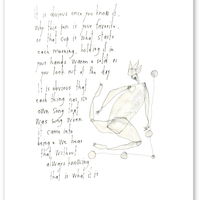 It is obvious once you know it.
why this pen is your favorite,
or that cup is what starts
each morning, holding it in
your hands warm & cold as
you look out at the day.
It is obvious that
each thing has its
own song that
was sung when
it came into
being & we hear
that without
always knowing
that is what it is